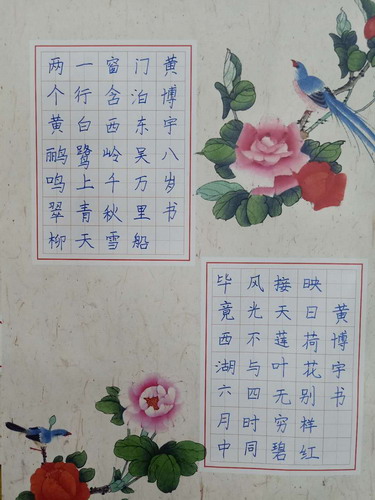 两个黄鹂鸣翠柳
一行白鹭上青天
窗含西岭千秋雪
门泊东吴万里船
黄博宇八岁书
毕竟西湖六月中
风光不与四时同
接天莲叶无穷碧
映日荷花别样红
黄博宇书